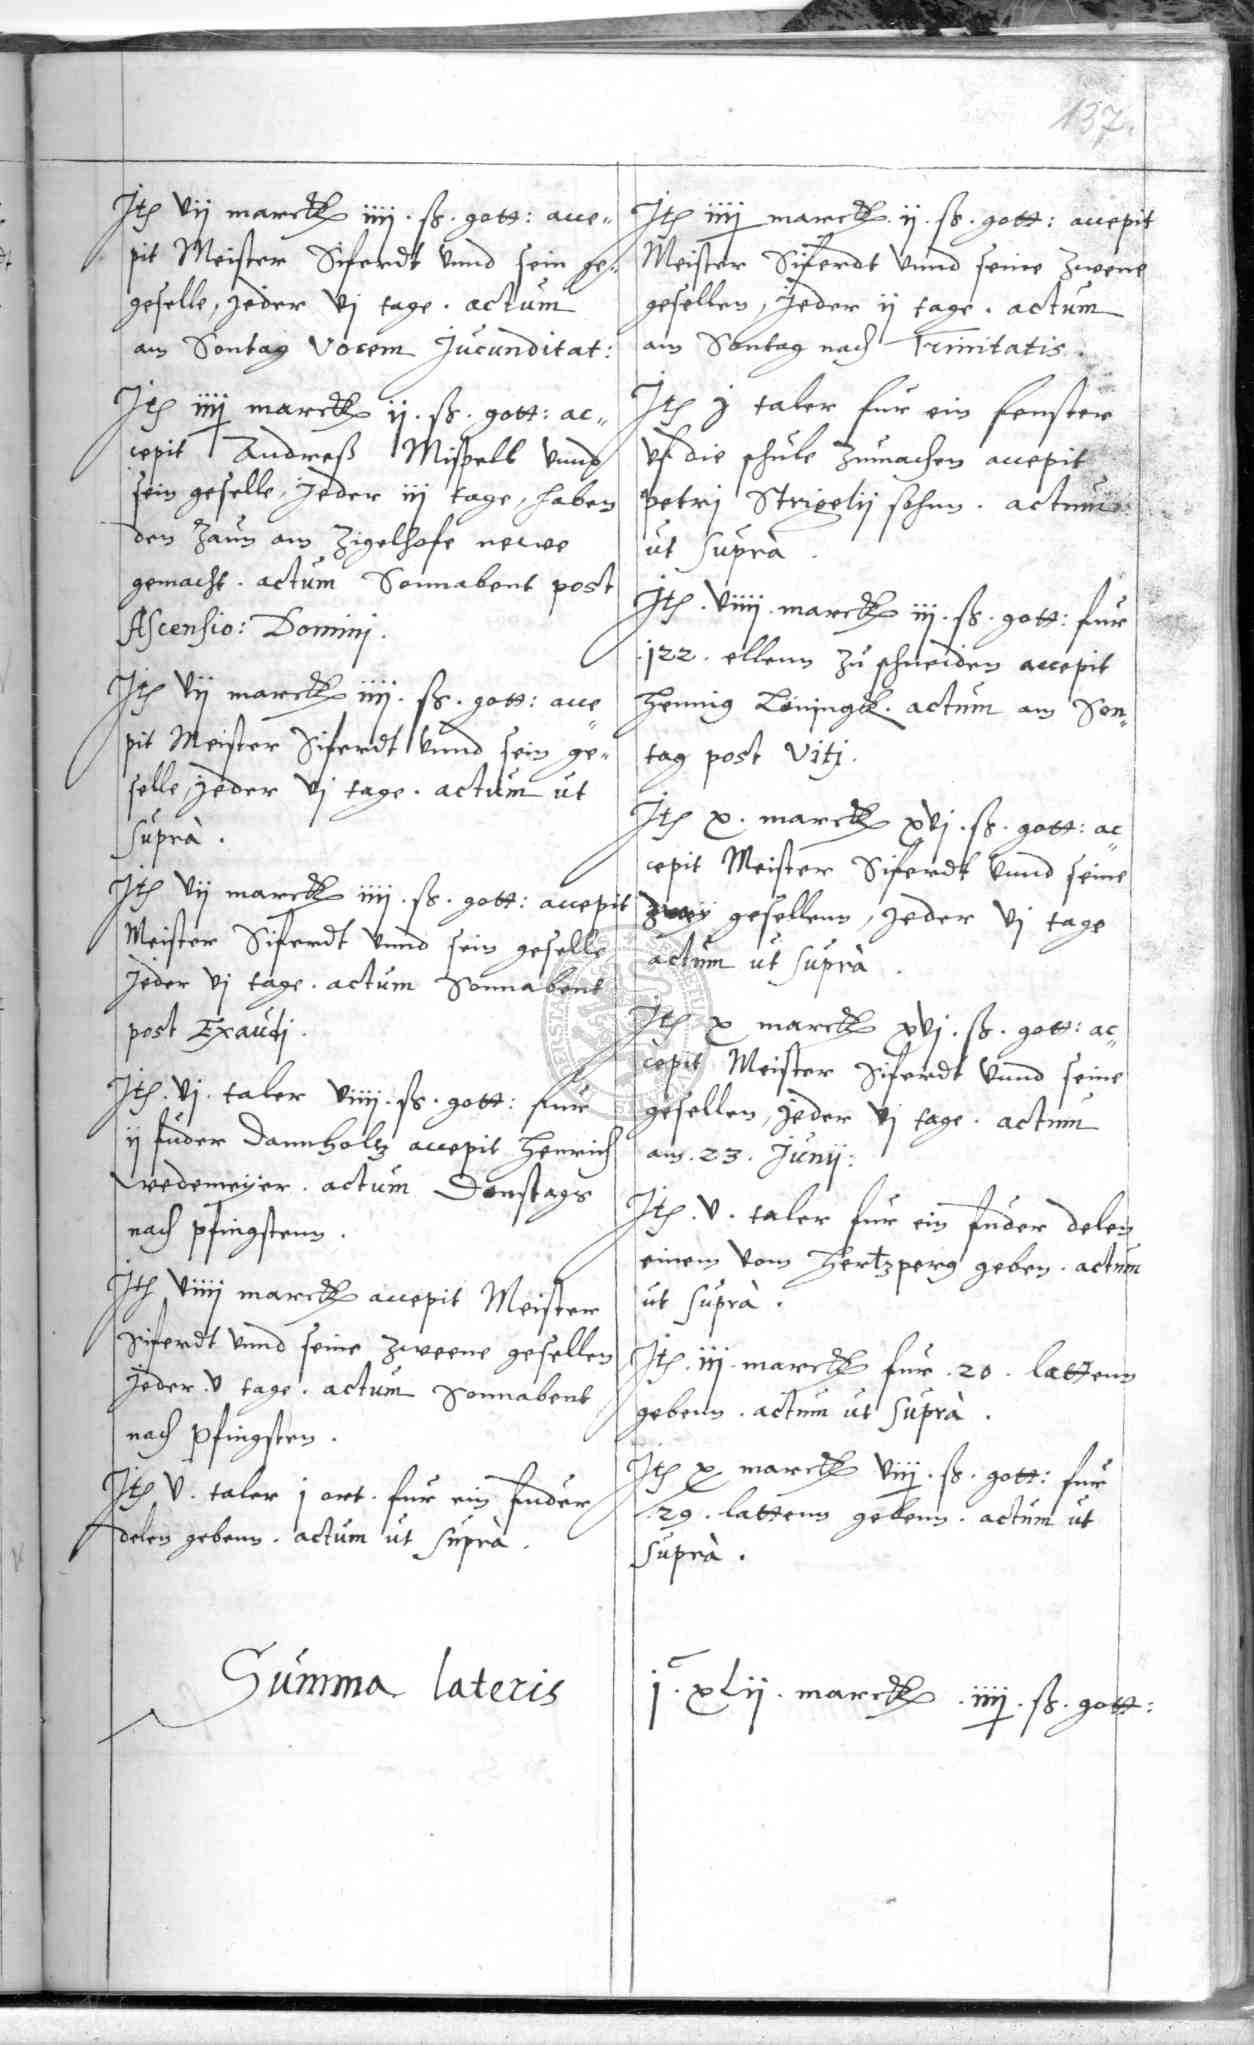 137.
Ite vij marck iiij. ß. gott: acce„
pit Meister Siferdt vnnd sein ge„
geselle, jeder vj tage. actum
am Sontag Vocem Jucunditat:
Ite iiij marck ij. ß. gott: ac„
cepit Andreß Mispell vnnd
sein geselle, jeder iij tage, haben
den Zaun am Zigelhofe newe
gemacht. actum Sonnabent post
Ascensio: Dominj.
Ite vij marck iiij. ß. gott: acce„
pit Meister Siferdt vnnd sein ge„
selle, jeder vj tage. actum ut
suprà.
Ite vij marck iiij. ß. gott: accepit
Meister Siferdt vnnd sein geselle
jeder vj tage. actum Sonnabent
post Exaudj.
Ite. vj. taler viiij. ß. gott: fur
ij fuder dannholtz accepit Henrich
wedemeyer. actum Donstags
nach pfingstenn.
Ite viiij marck accepit Meister
Siferdt vnnd seine zweene gesellen
jeder. v tage. actum Sonnabent
nach pfingsten.
Ite v. taler j ort. fur ein fuder
delen gebenn. actum ut suprà.
Ite iiij marck. ij. ß. gott: accepit
Meister Siferdt vnnd seine zweene
gesellen, jeder ij tage. actum
am Sontag nach Trinitatis.
Ite j taler fur ein fenster
vf die schule zumachen accepit
Petrj Strigelij sohnn. actum
ut suprà.
Ite. viiij. marck iij. ß. gott: fur
.122. ellenn zu schneiden accepit
Hennig Löningk. actum am Son„
tag post Vitj.
Ite x. marck xvj. ß. gott: ac„
cepit Meister Siferdt vnnd seine
zwey gesellenn, jeder vj tage
actum ut suprà.
Ite x marck xvj. ß. gott: ac„
cepit Meister Siferdt vnnd seine
gesellen, jeder vj tage. actum
am. 23. Junij:
Ite. v. taler fur ein fuder delen
einem vom Hertzperg geben. actum
ut suprà.
Ite. iij. marck fur. 20. lattenn
gebenn. actum ut suprà.
Ite x marck viij. ß. gott: fur
.29. lattenn gebenn. actum ut
suprà.
Summa lateris jc. xLij. marck. iiij. ß. gott: